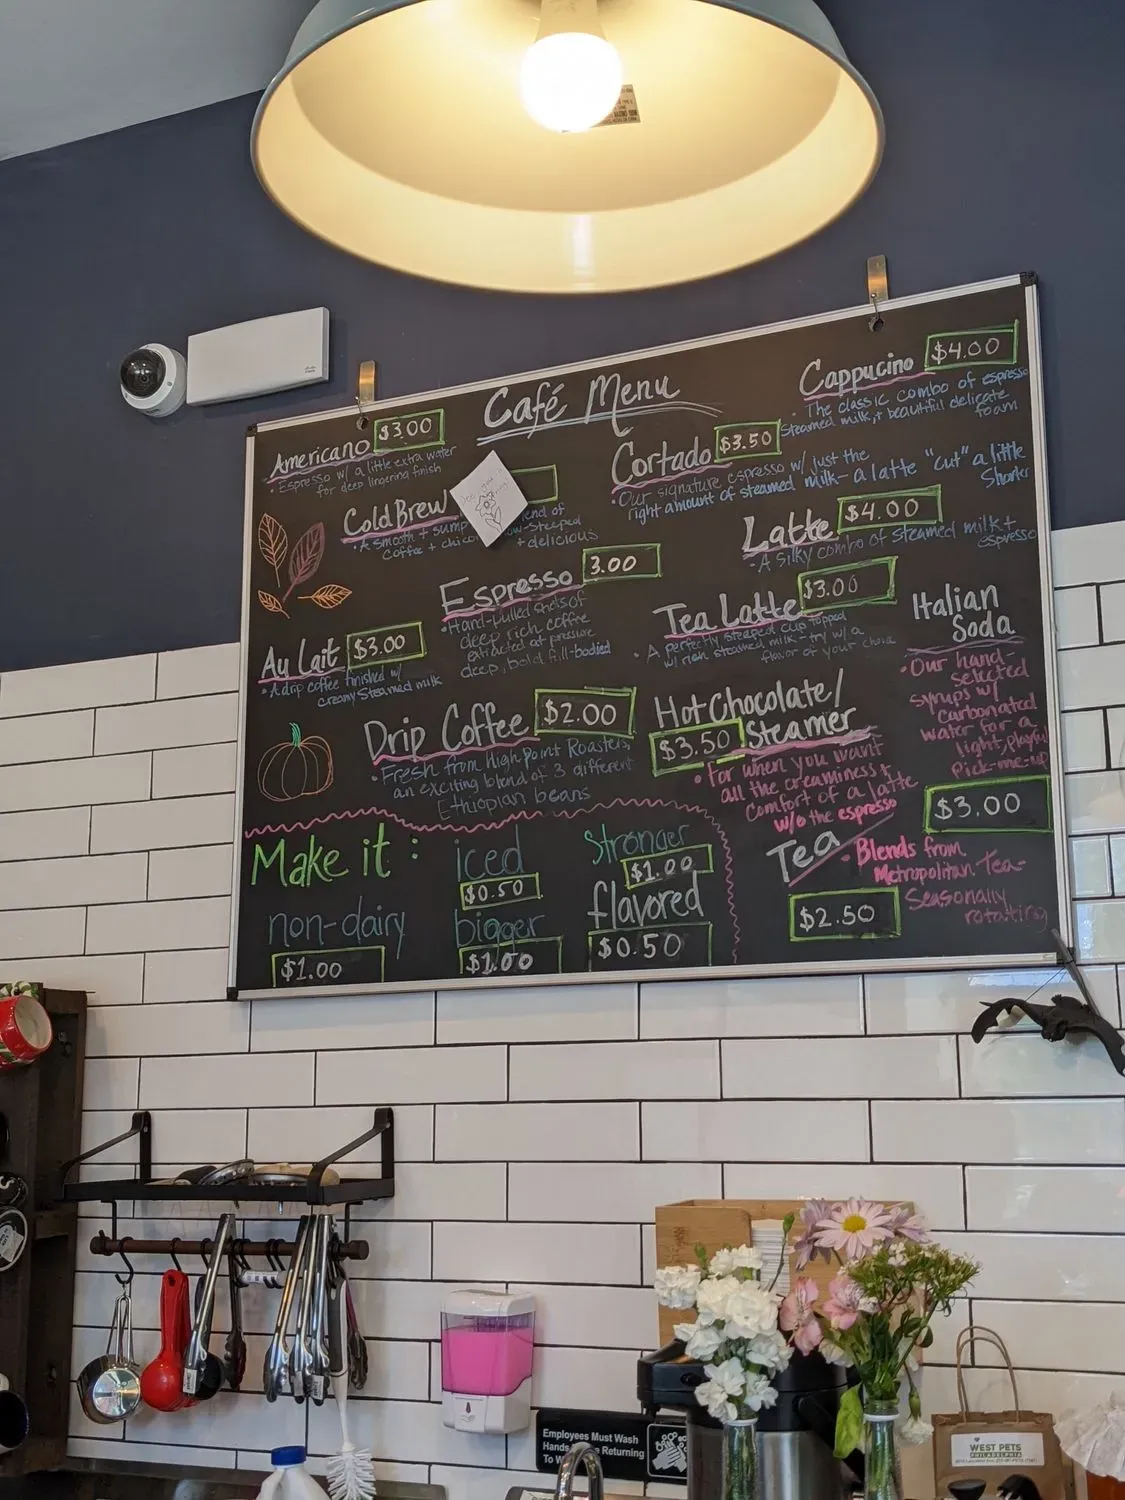 Café Menu
Americano $3.00
• Espresso w/ a little extra water
for deep lingering finish
Cold Brew
• A smooth +
coffee +
+ delicious
Espresso 3.00
• Hand-pulled shots of
deep rich coffee
extracted at pressure
deep, bold full-bodied
Au Lait $3.00
• A drip coffee finished w/
creamy steamed milk
Drip Coffee $2.00
• Fresh from High Point Roasters,
an exciting blend of 3 different
Ethiopian beans
Cappucino $4.00
• The classic combo of espresso
steamed milk, + beautiful delicate
foam
Cortado $3.50
• Our signature espresso w/ just the
right amount of steamed milk- a latte "cut" a little
Shorter
Latte $4.00
• A silky combo of steamed milk +
espresso
Tea Latte $3.00
• A perfectly steeped cup topped
w/ rich steamed milk - try w/ a
flavor of your choice
Italian
Soda
• Our hand-
selected
syrups w/
carbonated
water for a
light, playful
pick-me-up
$3.00
Hot Chocolate/
$3.50 Steamer
• For when you want
all the creaminess +
comfort of a latte
w/o the espresso
Tea
• Blends from
Metropolitan Tea-
Seasonally
rotating
$2.50
Make it:
iced
$0.50
Stronger
$1.00
non-dairy
$1.00
bigger
$1.00
flavored
$0.50
Employees Must Wash
Hands Returning
To
WEST PETS
PHILADELPHIA